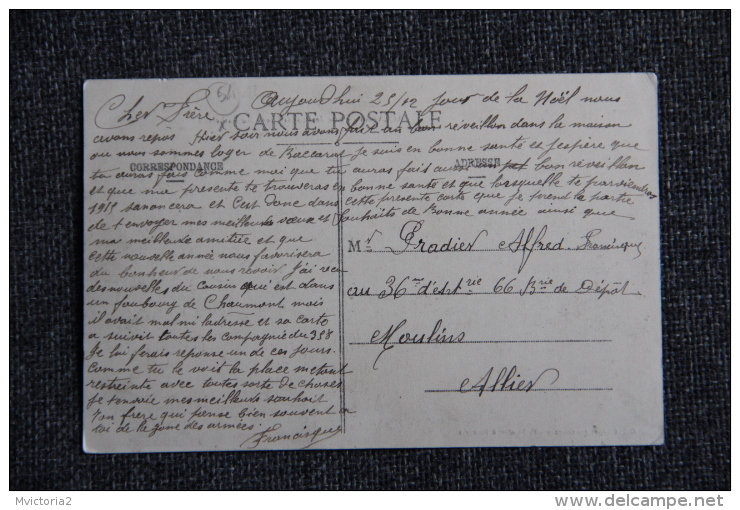 54
Cher Frère Aujourd'hui 25/12 jour de la Noël nous
CARTE POSTALE
avons repos Hier soir nous avons fait un bon réveillon dans la maison
ou nous sommes loger de Baccarat Je suis en bonne santé et j'espère que
CORRESPONDANCE
ADRESSE
tu auras fais comme moi que tu auras fait aussi bon réveillon
et que ma presente te trouveras en bonne santé et que lorsquelle te parviendras
1915 sanoncera et c'est donc dans cette presente carte que je prend la partie
de t envoyer mes meilleurs vœux et souhaits de Bonne année ainsi que
ma meilleure amitiée et que
cette nouvelle année nous favorisera
du bonheur de nous revoir J'ai reu
des nouvelles du cousin qui est dans
un foubourg de Chaumont mais
il avait mal mi ladresse et sa carte
a suivit toutes les compagnie du 358
Je lui ferais reponse un de ces jours.
Comme tu le voit la place metant
restreinte avec toutes sorte de choses
Je t'envoie mes meilleurs souhait
Ton frere qui pense bien souvent a
toi de la zone des armées.
Francisque
Mr Pradier Alfred Francisque
au 36me d'artrie 66 Brie de Dépot
Moulins
Allier
Mvictoria2
http://mvictoria2.delcampe.net